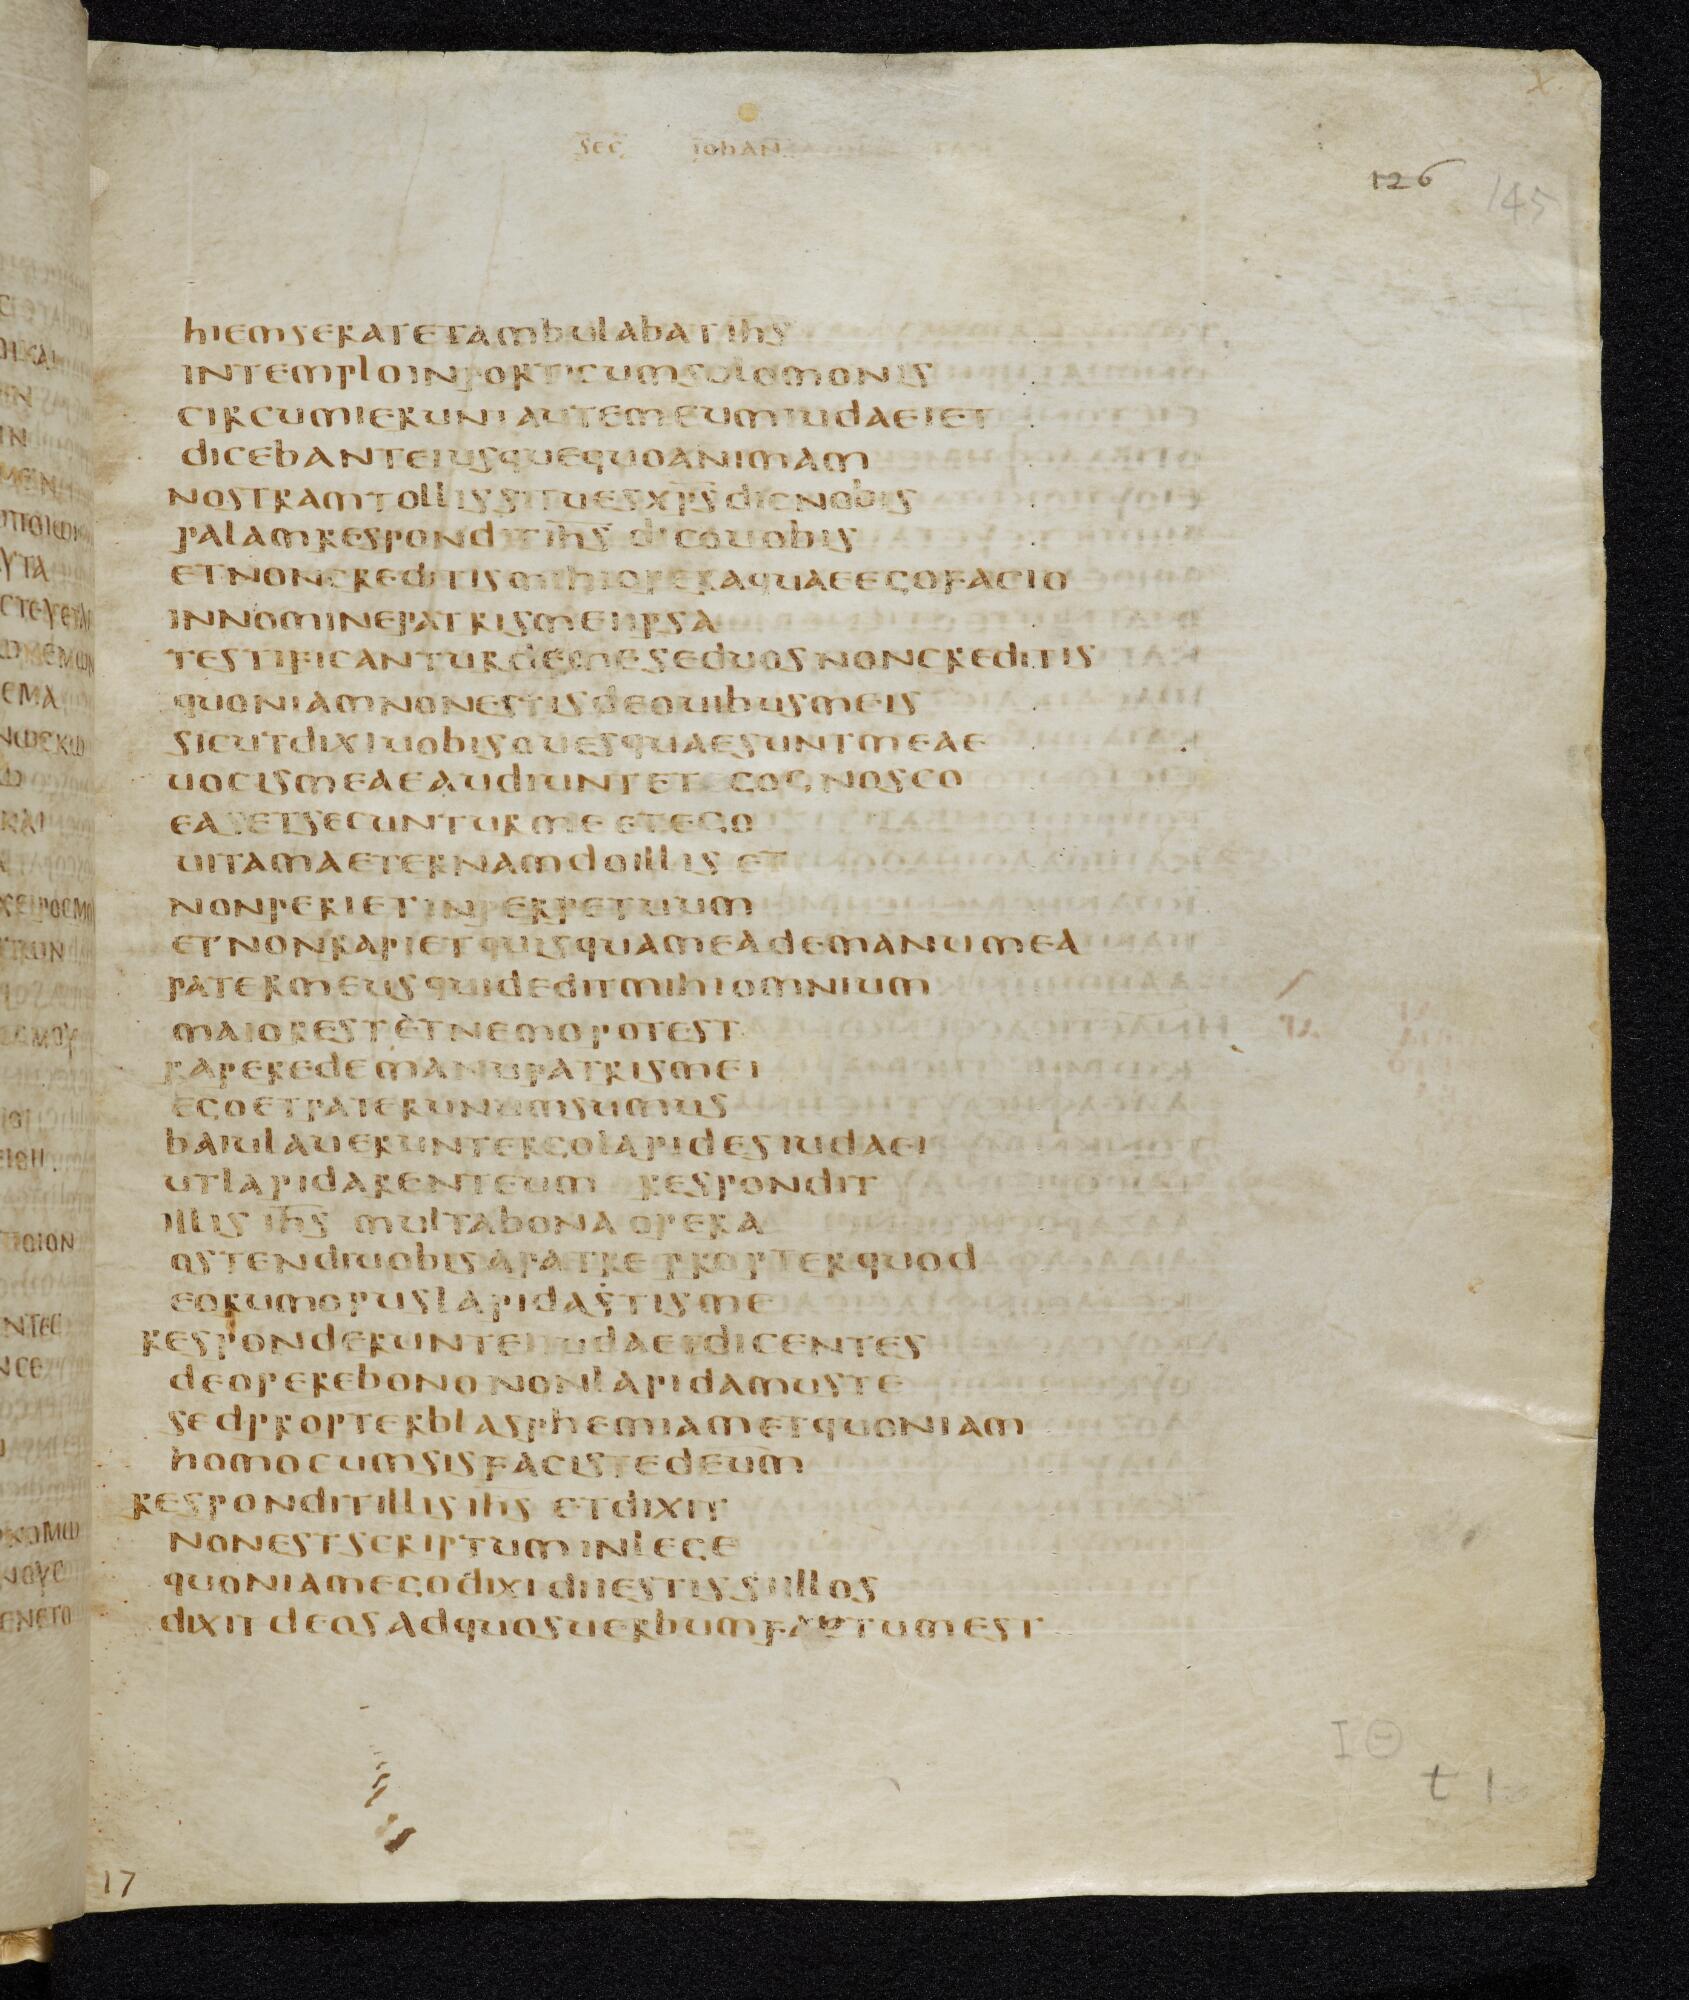 sec iohan
126 145
hiemseratetambulabatihs
intemploinporticumsolomonis
circumieruntautemeumiudaeiet
dicebanteiusquequoanimam
nostramtollissituesxpsdicnobis
palamresponditihs dicouobis
etnoncreditismihioperaquaeegofacio
innominepatrismeiipsa
testificanturdemeseduosnoncreditis
quoniamnonestisdeouibusmeis
sicutdixiuobisouesquaesuntmeae
uocismeaeaudiuntet cognosco
easetsecunturme etego
uitamaeternamdoillis et
nonperietinperpetuum
etnonrapietquisquameademanumea
patermeusquideditmihiomnium
maiorestetnemopotest
raperedemanupatrismei
egoetpaterunumsumus
baiulaueruntergolapidesiudaei
utlapidarenteum respondit
illis ihs multabonaopera
ostendiuobisapatrepropterquod
eorumopuslapidastisme
responderunteiiudaeidicentes
deoperebonononlapidamuste
sedpropterblasphemiametquoniam
homocumsisfacistedeum
responditillisihs etdixit
nonestscriptuminlege
quoniamegodixidiiestissiillos
dixitdeosadquosuerbumfactumest
ΙΘ
t 1
17